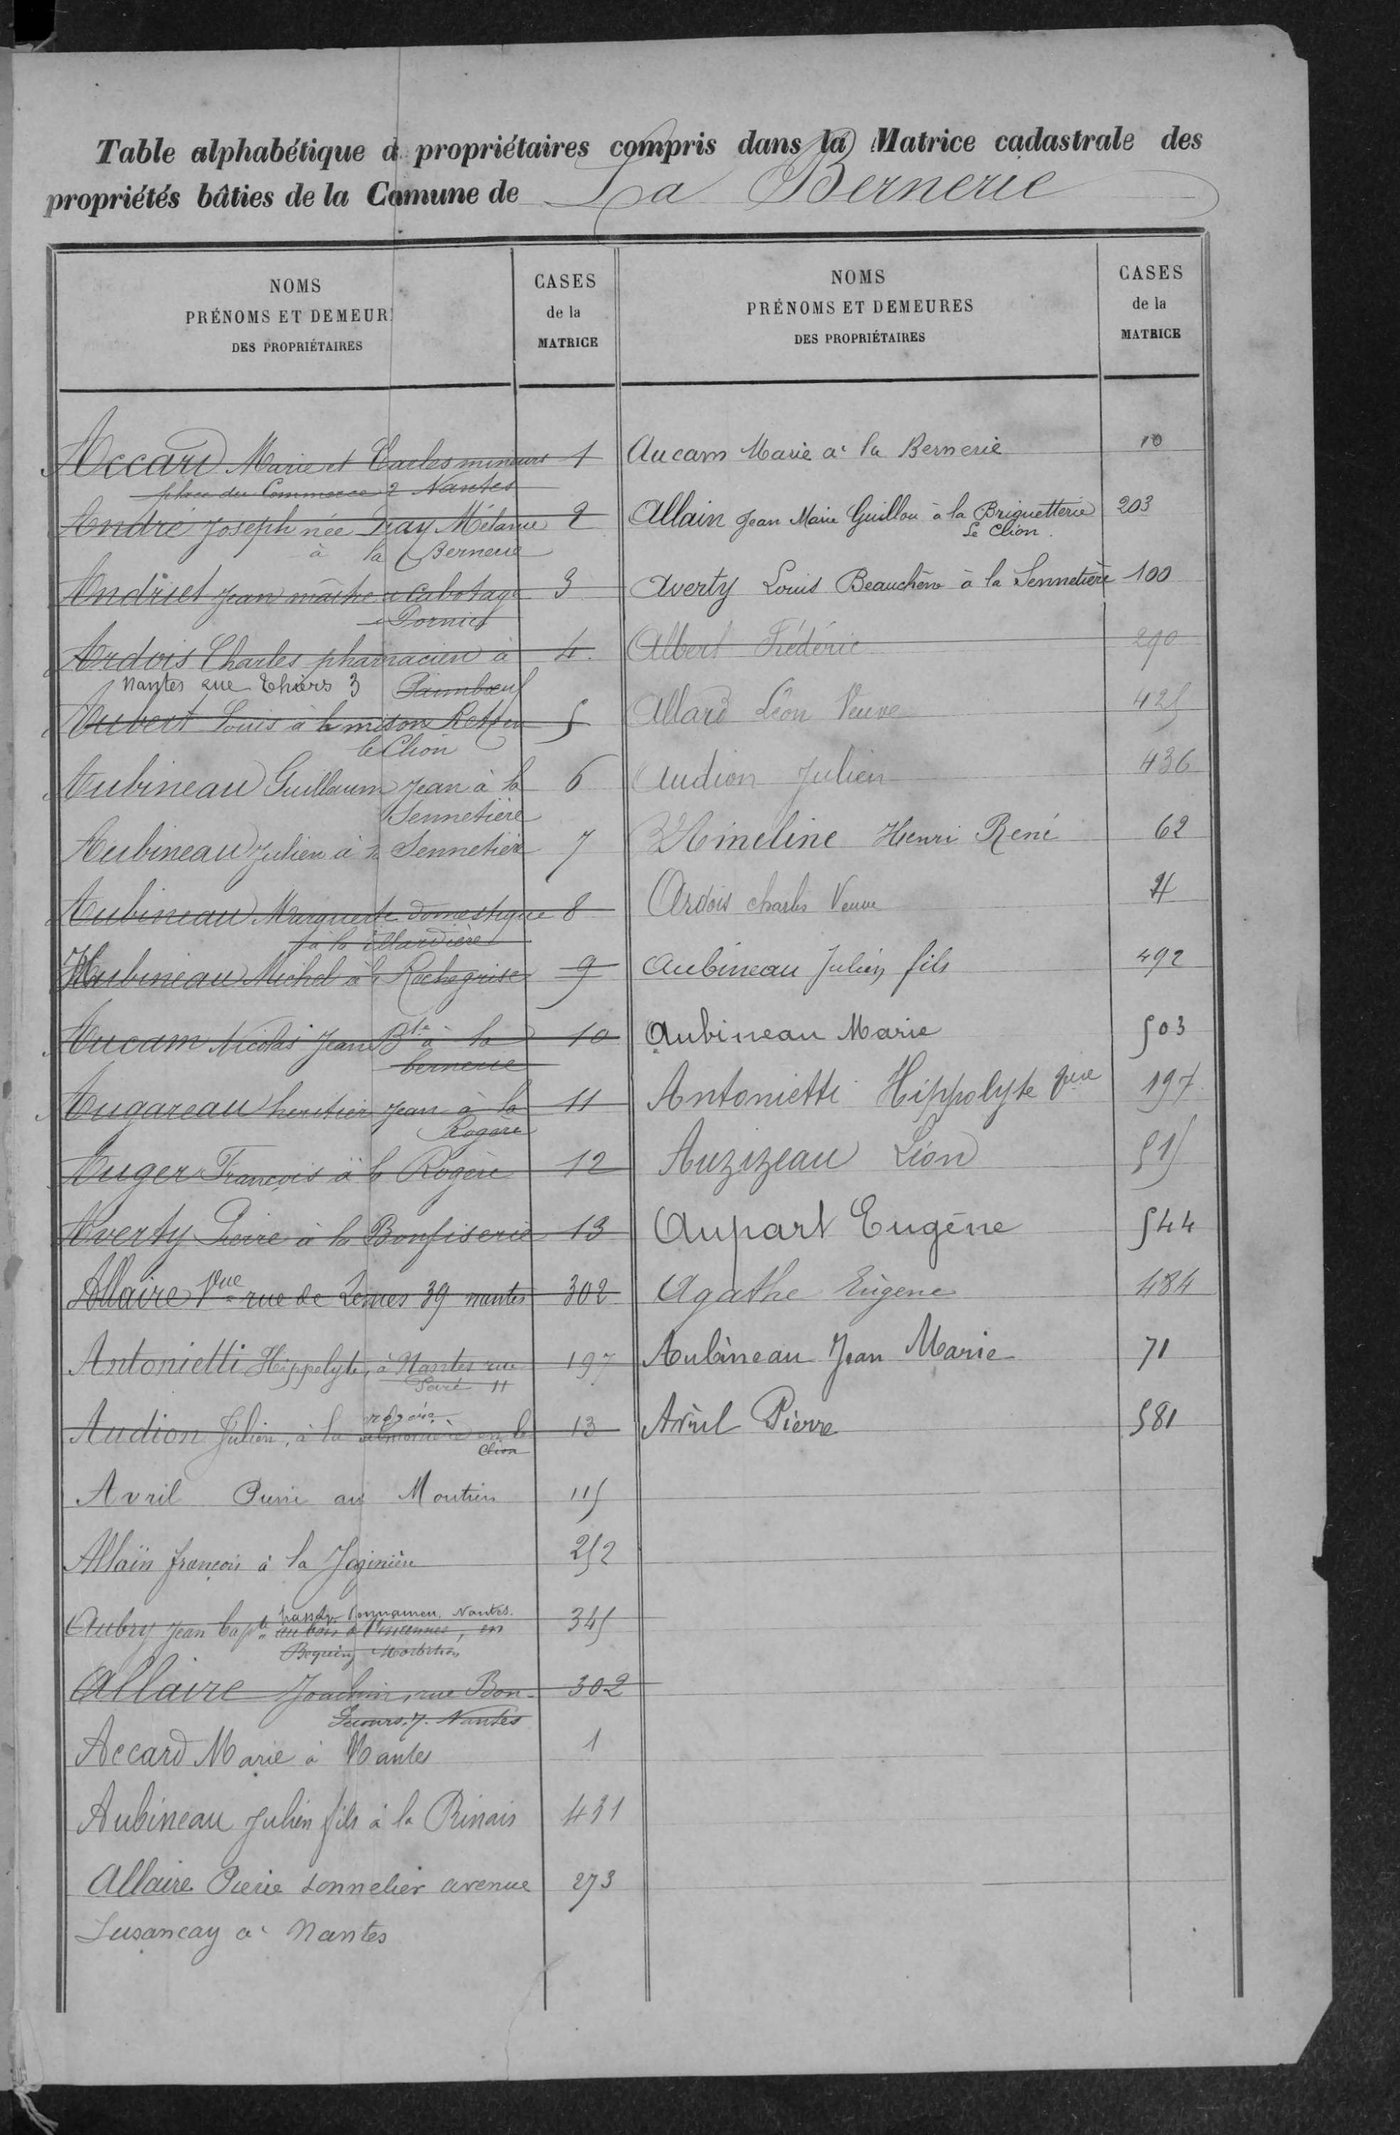 Table alphabétique d propriétaires compris dans la Matrice cadastrale des
propriétés bâties de la Comune de La Bernerie
NOMS
PRÉNOMS ET DEMEUR
DES PROPRIÉTAIRES
CASES
de la
MATRICE
Accard Marie et Charles mineurs 1
place du Commerce 2 Nantes
André Joseph née Mélanie 2
à la Bernerie
Andriet Jean maître a Cabotage 3
Pornic
Ardois Charles pharmacien à 4
Nantes rue Thiers 3 Paimbœuf
Aubert Louis à la 5
le Clion
Aubineau Guillaum Jean à la 6
Sennetière
Aubineau Julien à la Sennetière 7
Aubineau Marguerite domestique 8
à la
Aubineau Michel à la Rochegrise 9
Aucam Nicolas Jean Bte à la 10
bernerie
Augareau heritier Jean à la 11
Rogère
Auger François à la Rogère 12
Averty Pierre à la Bonfiserie 13
Allaire Vve rue de 39 nantes 302
Antonietti Hippolyte, à Nantes rue 197
11
Audion Julien, à la en le 13
Clion
Avril Pierre au Moutiers 115
Allain françois à la Joginière 252
Nantes.
Aubry Jean Bapte 345
Allaire Joachim, rue Bon- 302
Secours. 7. Nantes
Accard Marie à Nantes 1
Aubineau Julien fils à la Rinais 431
Allaire Pierre tonnelier avenue 273
Lusançay à Nantes
NOMS
PRÉNOMS ET DEMEURES
DES PROPRIÉTAIRES
CASES
de la
MATRICE
Aucam Marie à la Bernerie 10
Allain Jean Marie Guillou à la Briquetterie 203
Le Clion.
Averty Louis Beauchêne à la Sennetière 100
Albert Frédéric 290
Allard Léon Veuve 425
Audion Julien 436
Hineline Henri René 62
Ardois charles Veuve 4
Aubineau Julien fils 492
Aubineau Marie 503
Antonietti Hippolyte 197
Auzizeau Léon 515
Aupart Eugène 544
Agathe Eugene 484
Aubineau Jean Marie 71
Avril Pierre 581